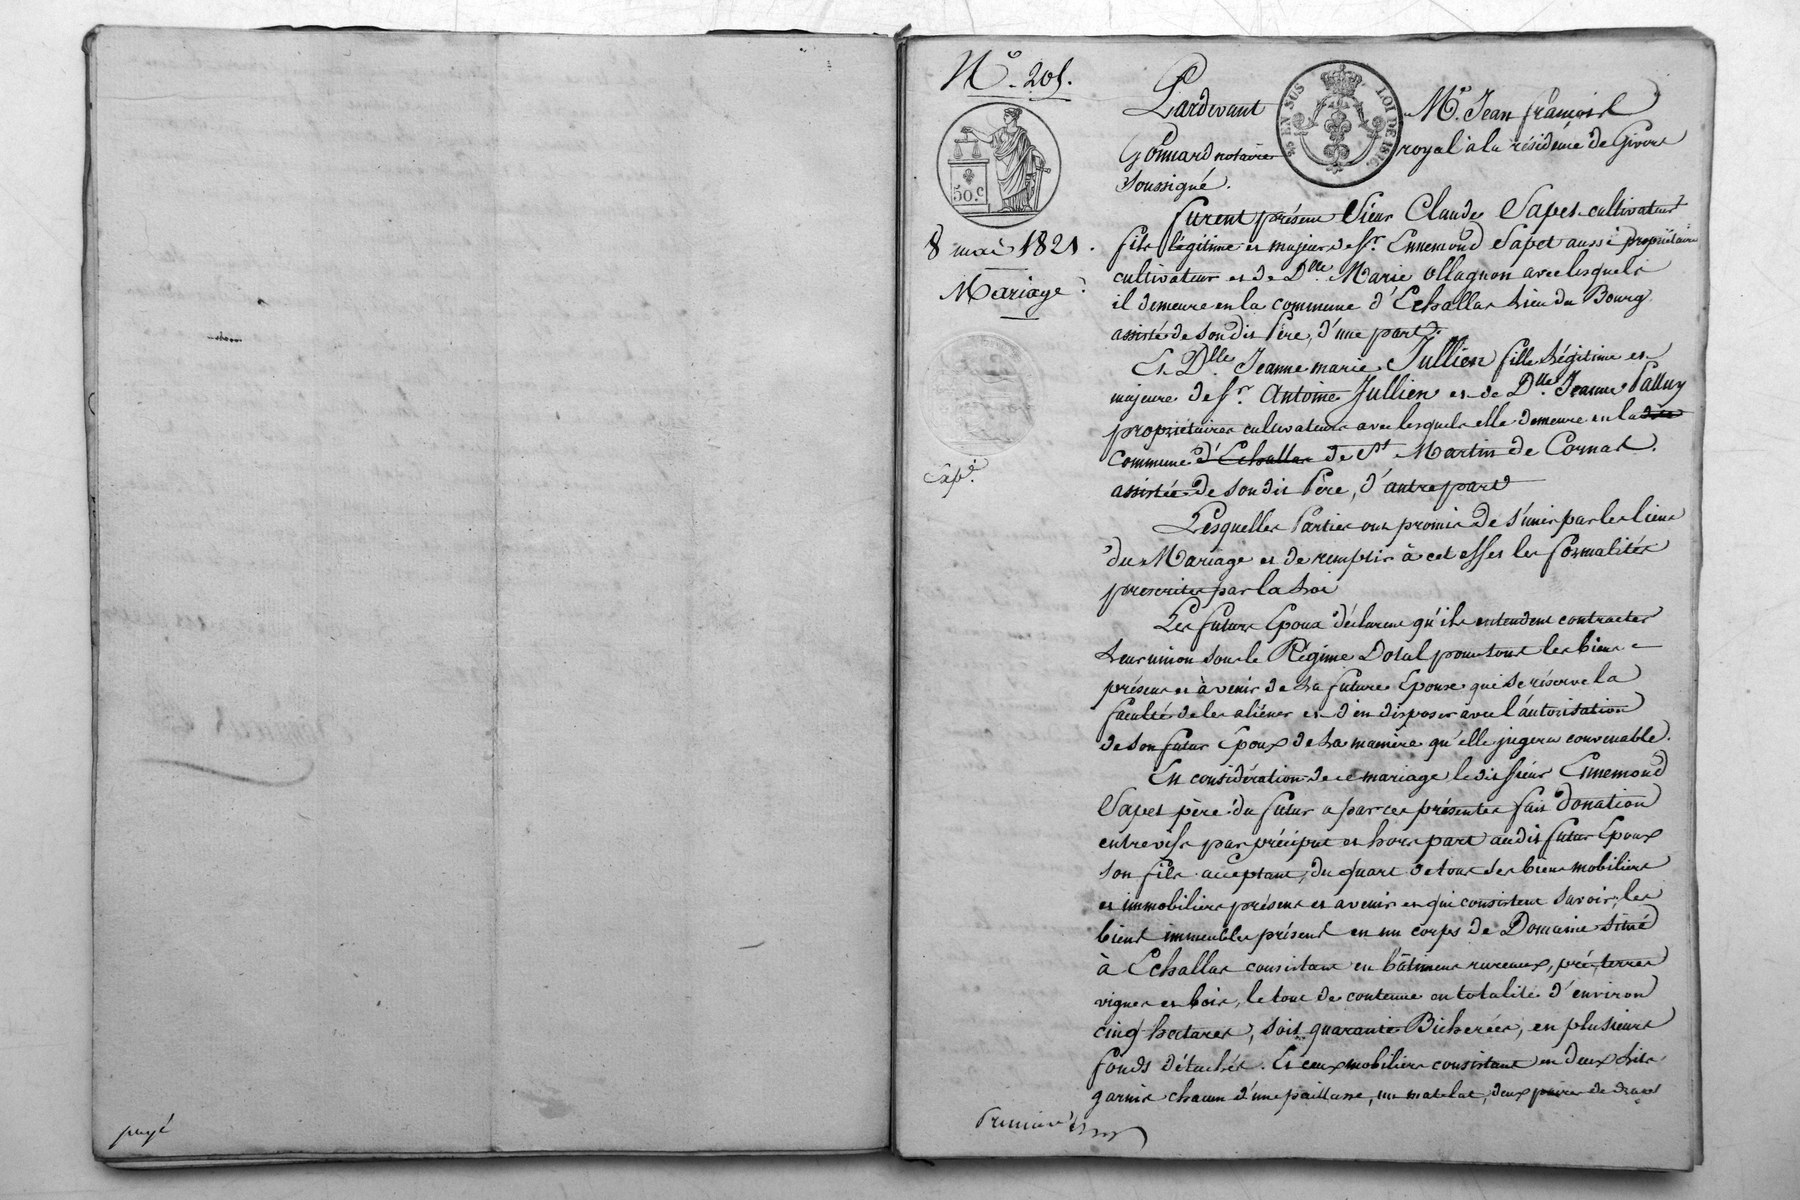 payé
N.º 205.
50.c
8 mai 1821.
Mariage.
Expé.
25 EN SUS LOI DE 1816.
Pardevant Me. Jean françois
Gonnard notaire royal à la résidence de Givors
soussigné.
furent présent Sieur Claude Sapet cultivateur
fils légitime et majeur de Sr. Ennemond Sapet aussi propriétaire
cultivateur et de Dlle. Marie Ollagnon avec lesquels
il demeure en la commune d'Echallas lieu du Bourg
assisté de son dit Père, d'une part.
Et Dlle. Jeanne marie Jullien fille légitime et
majeure de Sr. Antoine Jullien et de Dlle. Jeanne Palluy
propriétaires cultivateurs avec lesquels elle demeure en la dite
commune d'Echallas de St Martin de Cornas.
assistée de son dit Père, d'autre part
Lesquelles Parties ont promis de s'unir par les liens
du Mariage et de remplir à cet effet les formalités
prescrites par la Loi
Les futurs Epoux déclarent qu'ils entendent contracter
leur union sous le Régime Dotal pour tous les biens
présens et à venir de la future Epouse qui se réserve la
faculté de les aliéner et d'en disposer avec l'autorisation
de son futur Epoux de la manière qu'elle jugera convenable.
En considération de ce mariage le dit sieur Ennemond
Sapet père du futur a par ces présentes fait donation
entrevifs par préciput et hors part audit futur Epoux
son fils acceptant, du quart de tous ses biens mobiliers
et immobiliers présens et avenir et qui consistent savoir; les
biens immeubles présens en un corps de Domaine situé
à Echallas consistant en bâtimens ruraux, pré, terres
vignes et bois, le tout de contenue en totalité d'environ
cinq hectares, soit quarante Bicherées, en plusieurs
fonds détachés. Et ceux mobiliers consistant en deux lits
garnis chacun d'une paillasse, un matelat, deux paires de draps